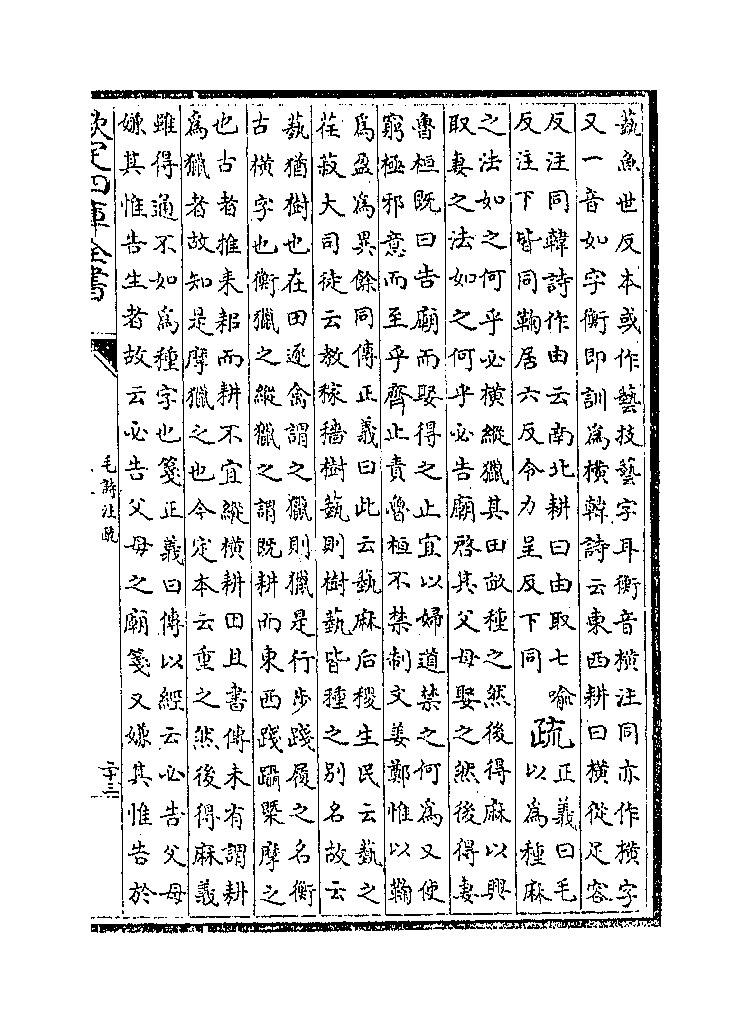 蓺魚世反本或作藝技藝字耳衡音横注同亦作横字
又一音如字衡即訓為横韓詩云東西耕曰横從足容
反注同韓詩作由云南北耕曰由取七喻
反注下皆同鞠居六反令力呈反下同
疏
正義曰毛
以為種麻
之法如之何乎必横縱獵其田畝種之然後得麻以興
取妻之法如之何乎必告廟啓其父母娶之然後得妻
魯桓既曰告廟而娶得之止宜以婦道禁之何為又使
窮極邪意而至乎齊止責魯桓不禁制文姜鄭惟以鞠
為盈為異餘同傳正義曰此云蓺麻后稷生民云蓺之
荏菽大司徒云教稼穡樹蓺則樹蓺皆種之别名故云
蓺猶樹也在田逐禽謂之獵則獵是行步踐履之名衡
古横字也衡獵之縱獵之謂既耕而東西踐躡槩摩之
也古者推耒耜而耕不宜縱横耕田且書傳未有謂耕
為獵者故知是摩獵之也今定本云重之然後得麻義
雖得通不如為種字也箋正義曰傳以經云必告父母
嫌其惟告生者故云必告父母之廟箋又嫌其惟告於
欽定四庫全書
毛詩注疏
二十三